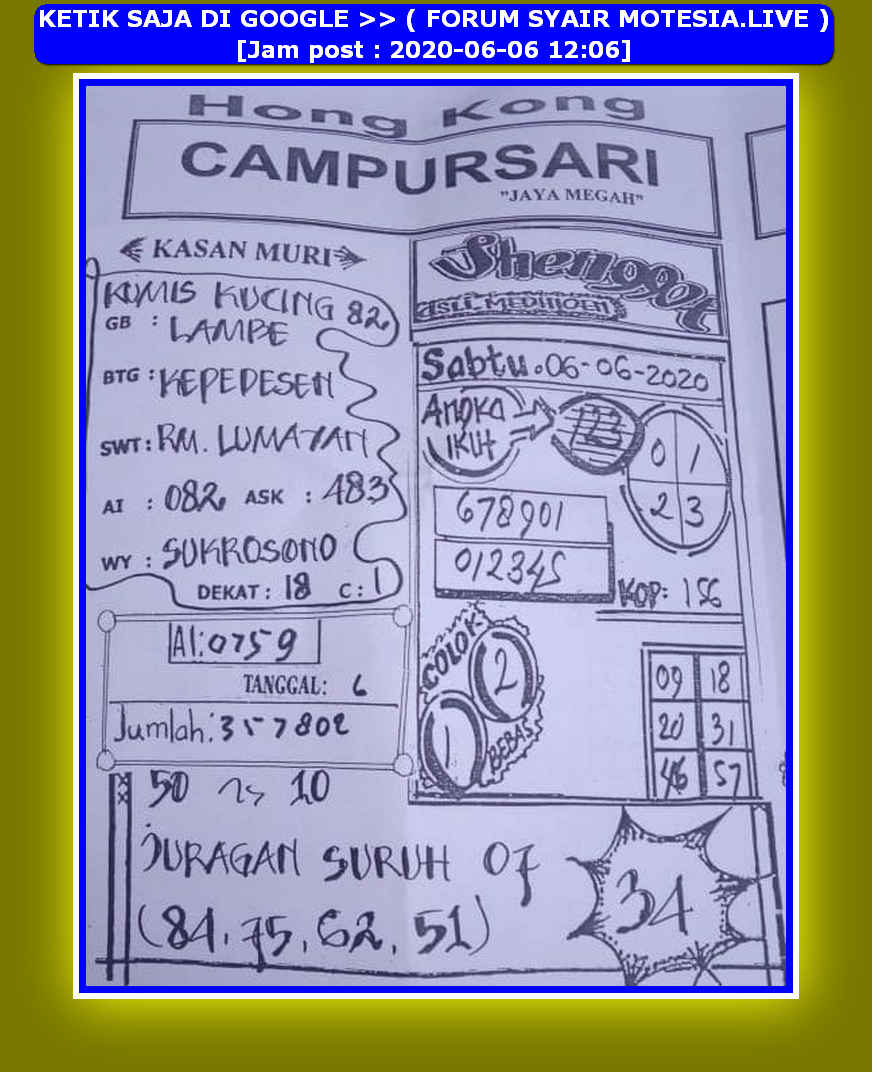 KETIK SAJA DI GOOGLE >> ( FORUM SYAIR MOTESIA.LIVE )
[Jam post : 2020-06-06 12:06]
Hong Kong
CAMPURSARI
"JAYA MEGAH"
KASAN MURI
KUMIS KUCING 82
GB : LAMPE
BTG : KEPEDESEN
SWT : RM. LUMAYAN
AI : 082 ASK : 483
WY : SUKROSONO
DEKAT : 18 C : 1
AI: 0759
TANGGAL: 6
Jumlah: 357802
50 10
JURAGAN SURUH OJ
(84, 75, 62, 51)
34
Shenggot
ASLI
Sabtu. 06-06-2020
Angka
IKUT
123
0 1
2 3
678901
012345
KOP: 156
COLOK
2
1
BEBAS
09 18
20 31
46 57